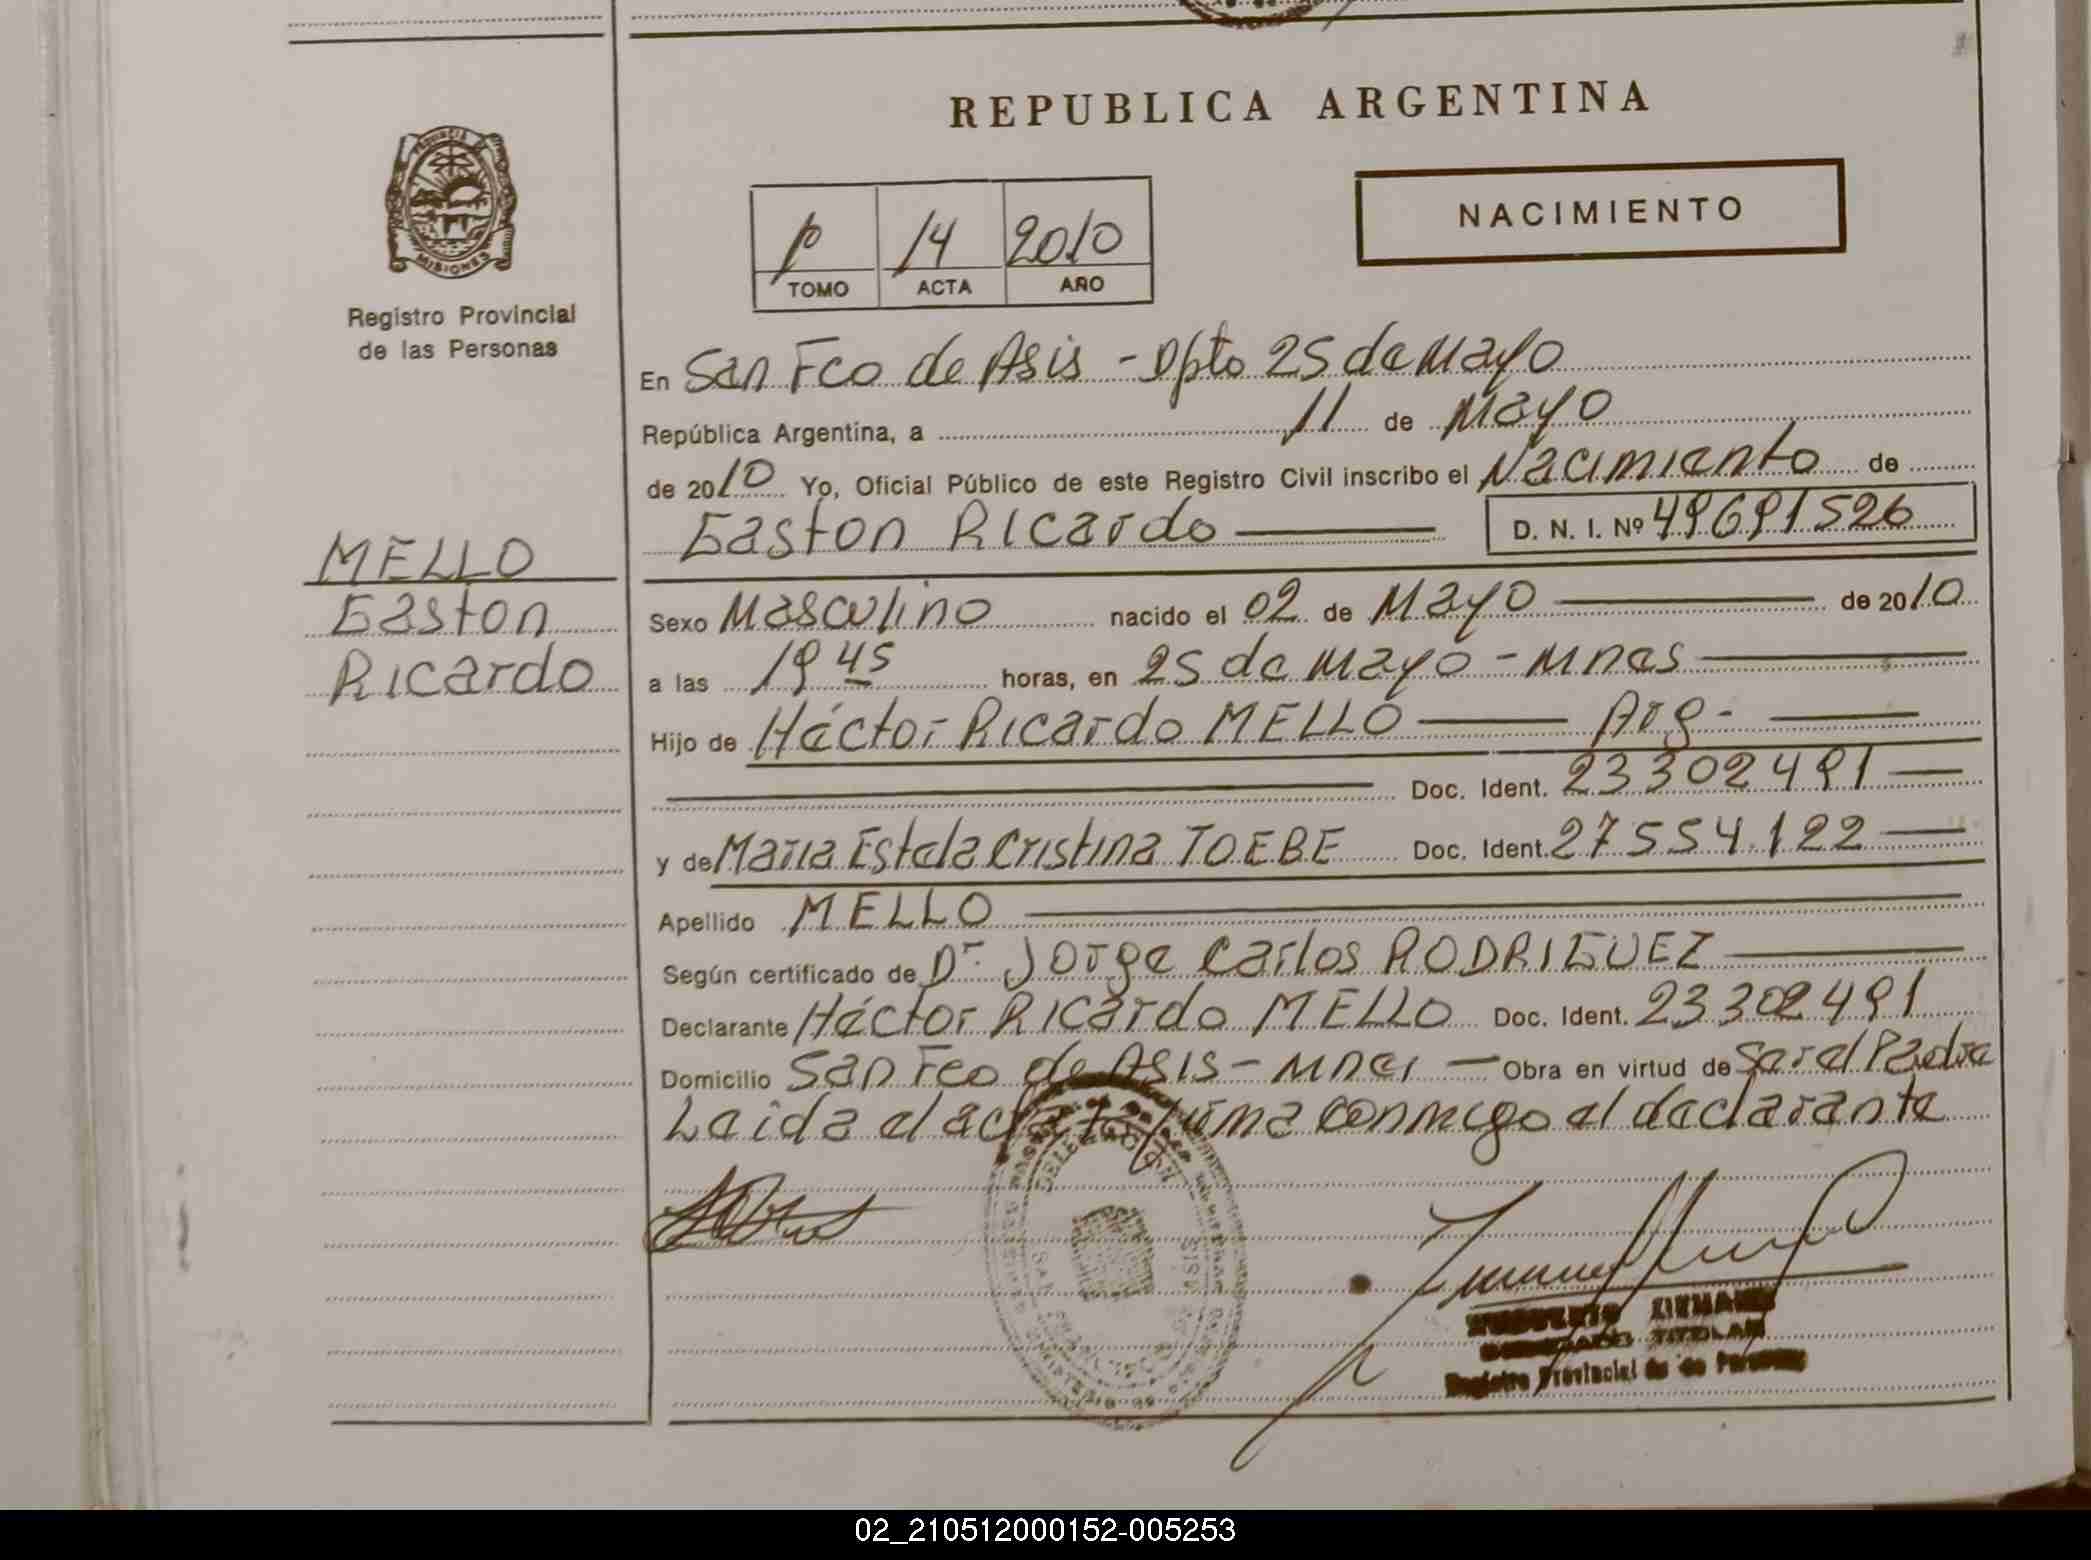 REPUBLICA ARGENTINA
PROVINCIA DE
MISIONES
Registro Provincial
de las Personas
1º 14 2010
TOMO ACTA AÑO
NACIMIENTO
En San Fco de Asis - Dpto 25 de Mayo
República Argentina, a 11 de Mayo
de 2010 Yo, Oficial Público de este Registro Civil inscribo el Nacimiento de
Gaston Ricardo D. N. I. Nº 49691526
MELLO
Gaston
Ricardo
Sexo Masculino nacido el 02 de Mayo de 2010
a las 19 45 horas, en 25 de Mayo - Mnes
Hijo de Héctor Ricardo MELLO Arg-
Doc. Ident. 23302491
y de Maria Estela Cristina TOEBE Doc. Ident. 27554.122
Apellido MELLO
Según certificado de Dr. Jorge Carlos RODRIGUEZ
Declarante Héctor Ricardo MELLO Doc. Ident. 23302491
Domicilio San Fco de Asis - Mnes - Obra en virtud de Ser el Padre
Leida el acta firma conmigo el declarante
DELEGACION
SAN FRANCISCO DE ASIS
TITULAR
Registro Provincial de
02_210512000152-005253